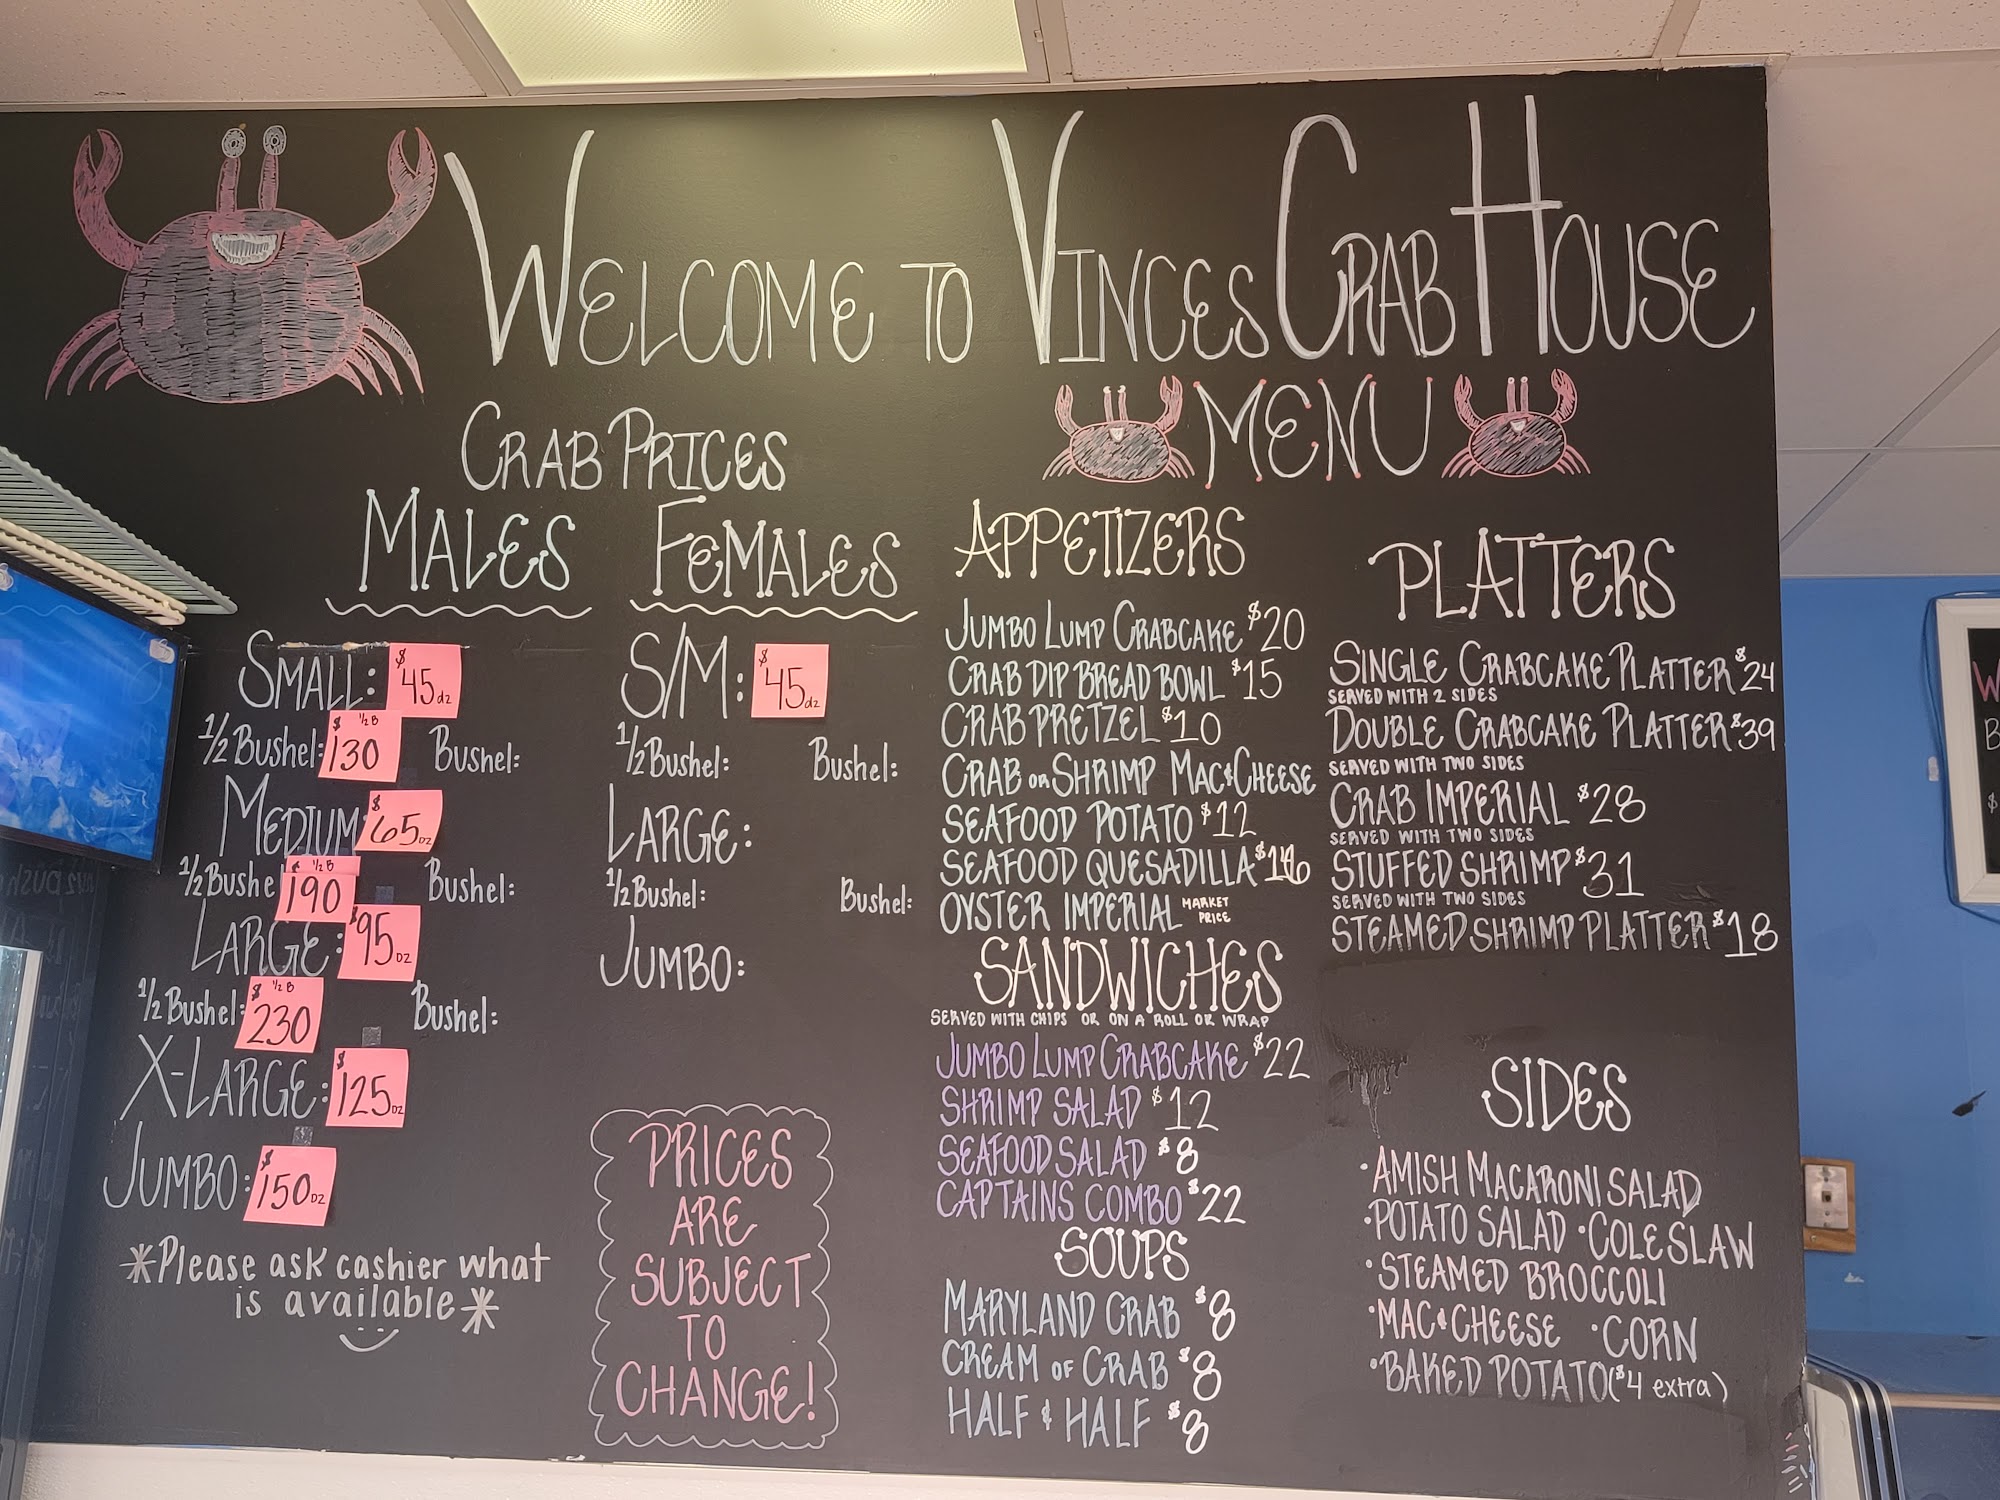 WELCOME TO VINCES CRAB HOUSE
CRAB PRICES
MALES
SMALL: $45 dz
1/2 Bushel: $130 1/2 B Bushel:
MEDIUM $65 DZ
1/2 Bushe 190 1/2 B Bushel:
LARGE: $95 DZ
1/2 Bushel: $230 1/2 B Bushel:
X-LARGE: $125 DZ
JUMBO: $150 DZ
*Please ask cashier what
is available*
FEMALES
S/M: $45 dz
1/2 Bushel: Bushel:
LARGE:
1/2 Bushel: Bushel:
JUMBO:
PRICES
ARE
SUBJECT
TO
CHANGE!
MENU
APPETIZERS
JUMBO LUMP CRABCAKE $20
CRAB DIP BREAD BOWL $15
CRAB PRETZEL $10
CRAB OR SHRIMP MAC & CHEESE
SEAFOOD POTATO $12
SEAFOOD QUESADILLA $16
OYSTER IMPERIAL MARKET PRICE
SANDWICHES
SERVED WITH CHIPS OR ON A ROLL OR WRAP
JUMBO LUMP CRABCAKE $22
SHRIMP SALAD $12
SEAFOOD SALAD $8
CAPTAINS COMBO $22
SOUPS
MARYLAND CRAB $8
CREAM OF CRAB $8
HALF & HALF $8
PLATTERS
SINGLE CRABCAKE PLATTER $24
SERVED WITH 2 SIDES
DOUBLE CRABCAKE PLATTER $39
SERVED WITH TWO SIDES
CRAB IMPERIAL $28
SERVED WITH TWO SIDES
STUFFED SHRIMP $31
SERVED WITH TWO SIDES
STEAMED SHRIMP PLATTER $18
SIDES
•AMISH MACARONI SALAD
•POTATO SALAD •COLESLAW
•STEAMED BROCCOLI
•MAC & CHEESE •CORN
•BAKED POTATO ($4 extra)